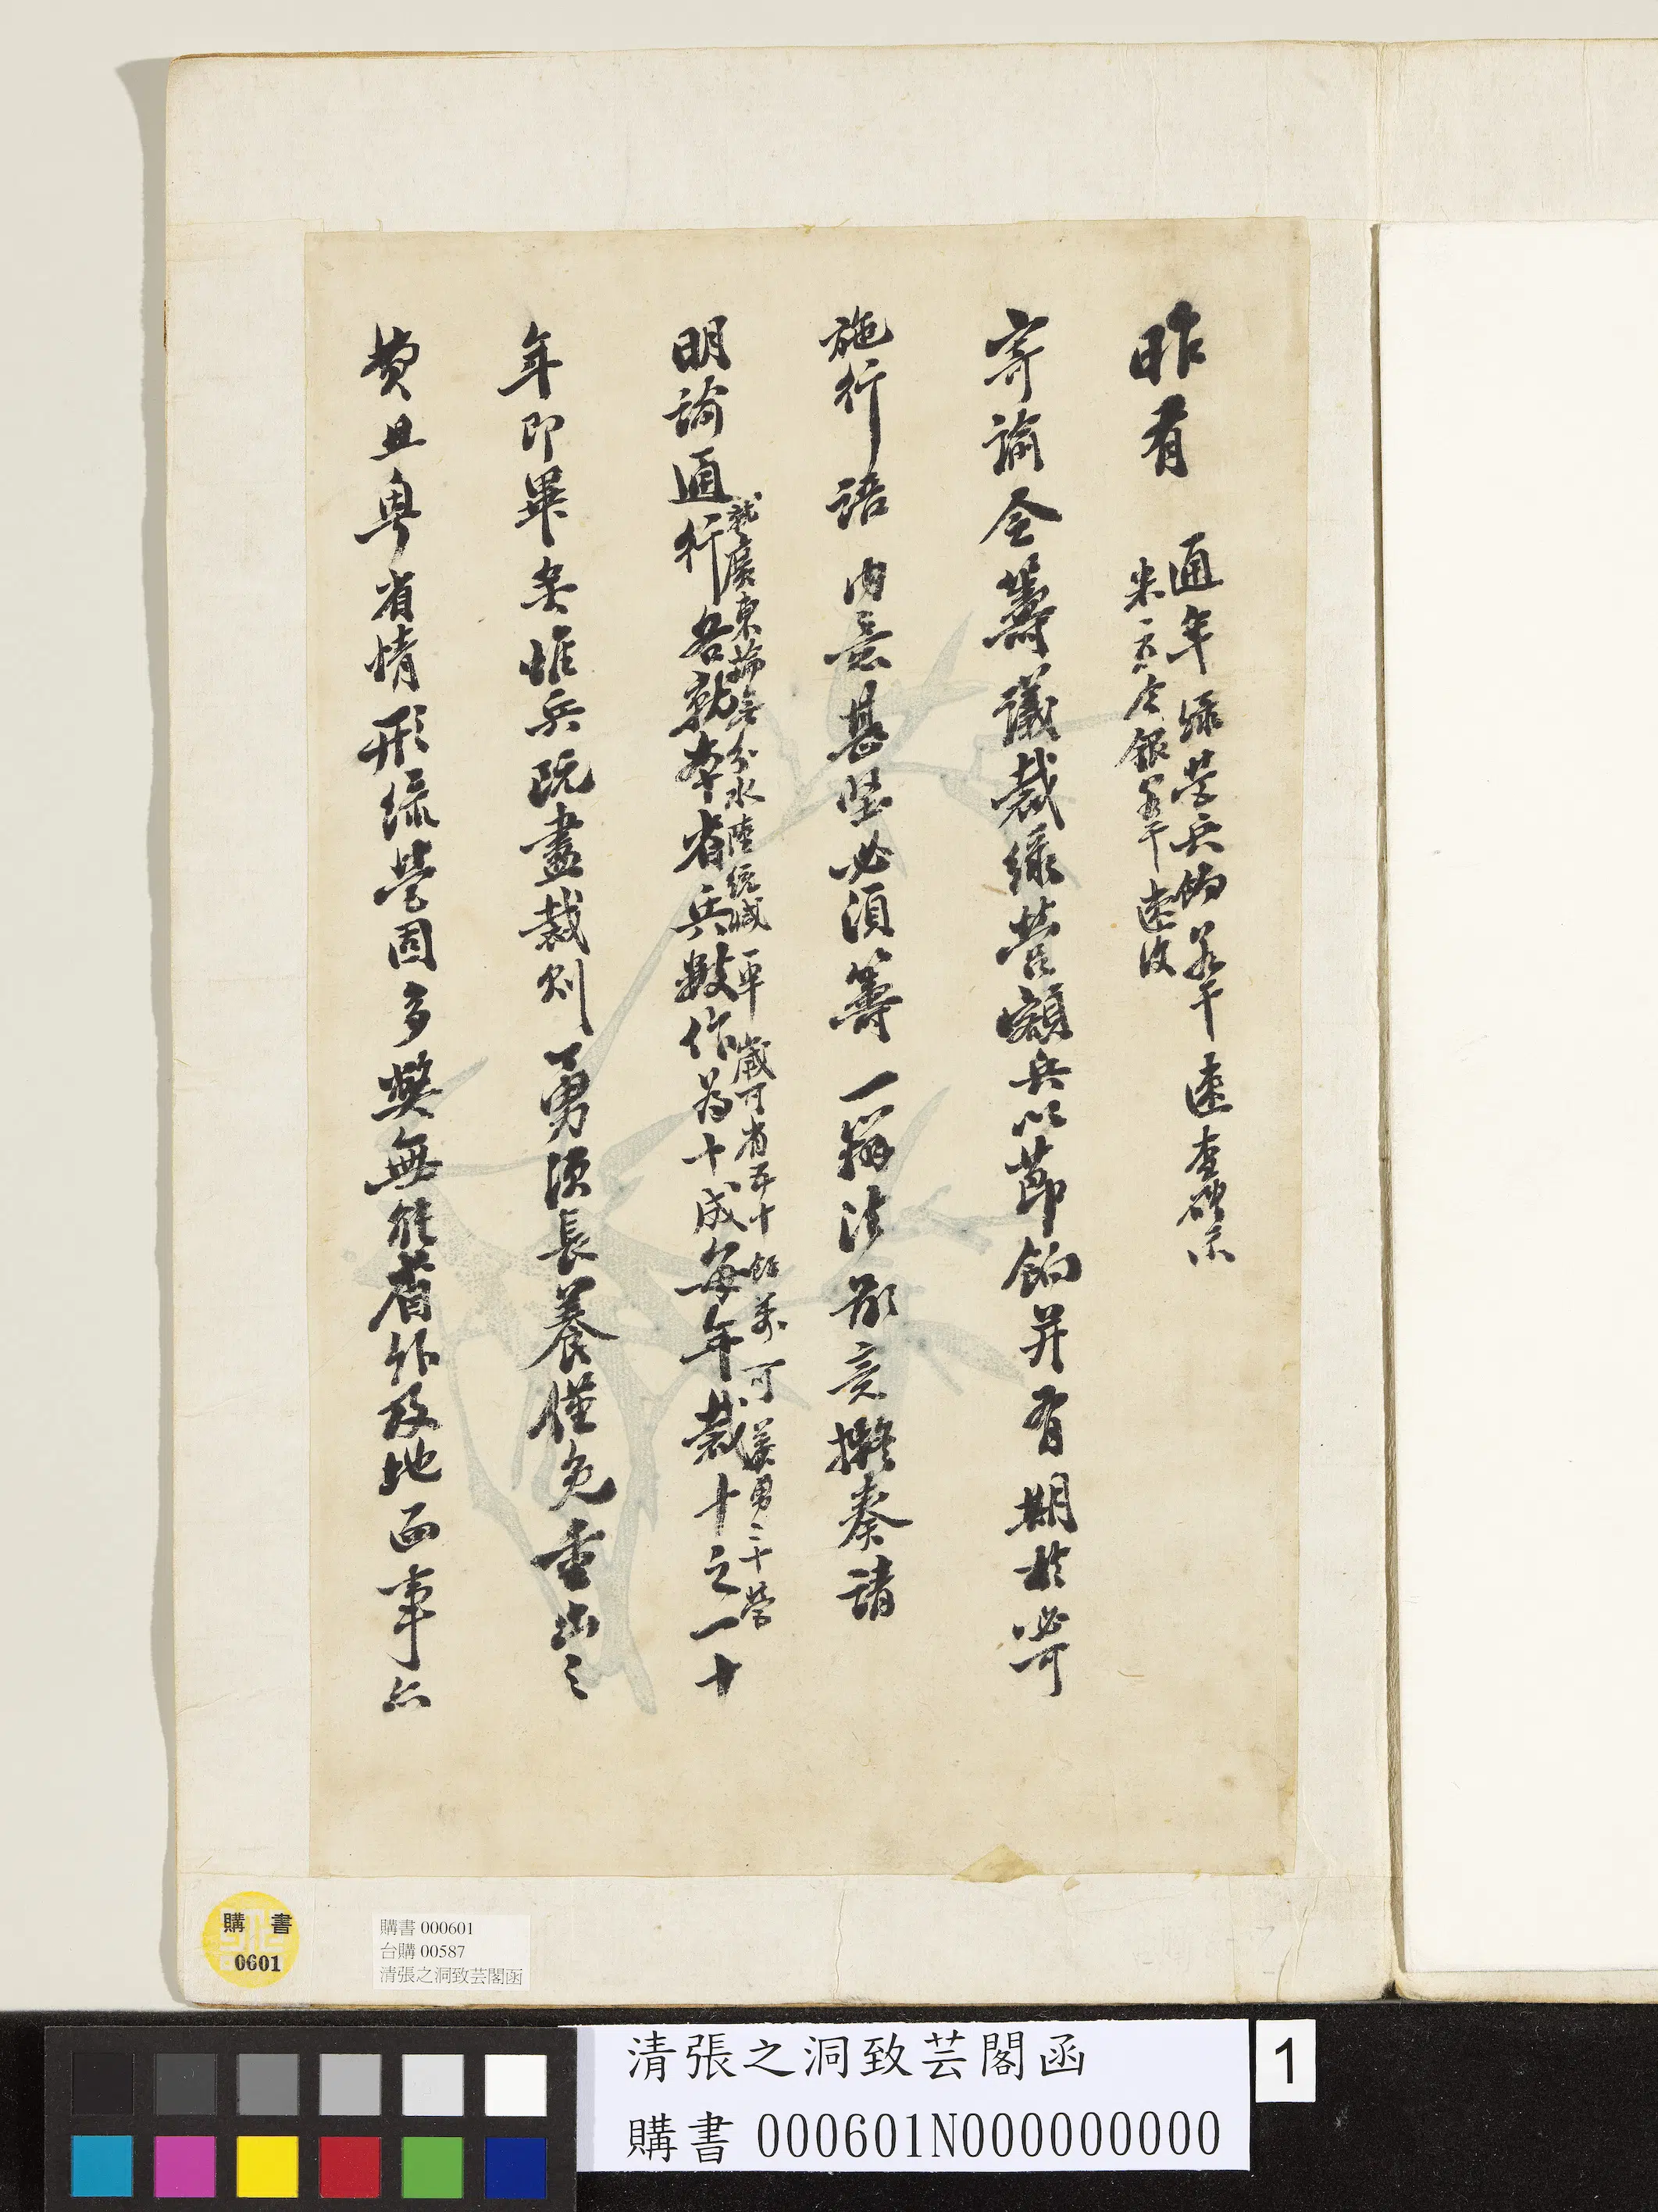 昨有
通年綠營兵餉若干速查確示
米立合銀若干速改
寄諭令籌議裁綠營額兵以節餉并有期於必可
施行語內意甚堅必須籌一辦法鄙意擬奏請
就廣東論無分水陸統減一軍歲可省五十餘萬可養勇二十營
明諭通行各就本省兵數作為十成每年裁十之一十
年即畢矣惟兵既盡裁則勇須長養僅免重出之
費且粵省情形綠營固多弊無能省作及地面事亦
購書
0601
購書 000601
台購 00587
清張之洞致芸閣函
清張之洞致芸閣函
購書 000601N000000000
1